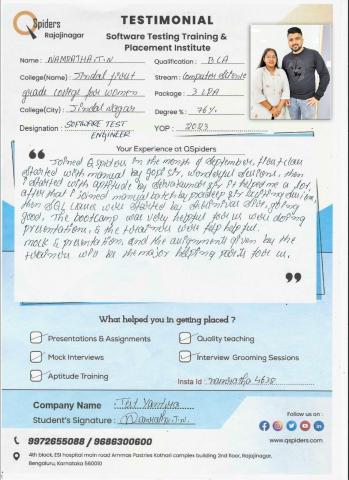 QSpiders
Rajajinagar
TESTIMONIAL
Software Testing Training &
Placement Institute
Name : NAMRATHA.T.N Qualification : BCA
College(Name) : Jindal first Stream : Computer science
grade college for women Package : 3 LPA
College(City) : Jindal Nagar Degree % : 76%
Designation : SOFTWARE TEST ENGINEER YOP : 2023
Your Experience at QSpiders
Joined Qspiders in the month of september, class
started with manual by gopi sir, wonderful sessions, then
I started with aptitude by sir it helped me a lot,
after that I joined manual batch by pradeep sir
then SQL classes were started by sir, going
good. The bootcamp was very helpful for us were doing
presentations, & the trainers were help helpful.
mock & presentation, and the assignments given by the
trainers will be the major helping parts for us.
What helped you in getting placed ?
Presentations & Assignments
Quality teaching
Mock Interviews
Interview Grooming Sessions
Aptitude Training
Insta Id : namratha 4638
Company Name : Test Yantra
Student's Signature : Namratha.T.N.
Follow us on :
9972655088 / 9686300600
www.qspiders.com
4th block, ESI hospital main road Ammas Pastries Kothari complex building 2nd floor, Rajajinagar,
Bengaluru, Karnataka 560010